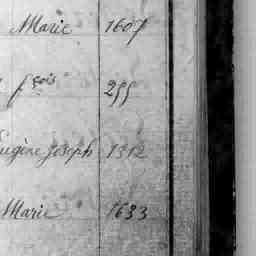 Marie 1607
fçois 255
Eugène Joseph 1312
Marie 1633